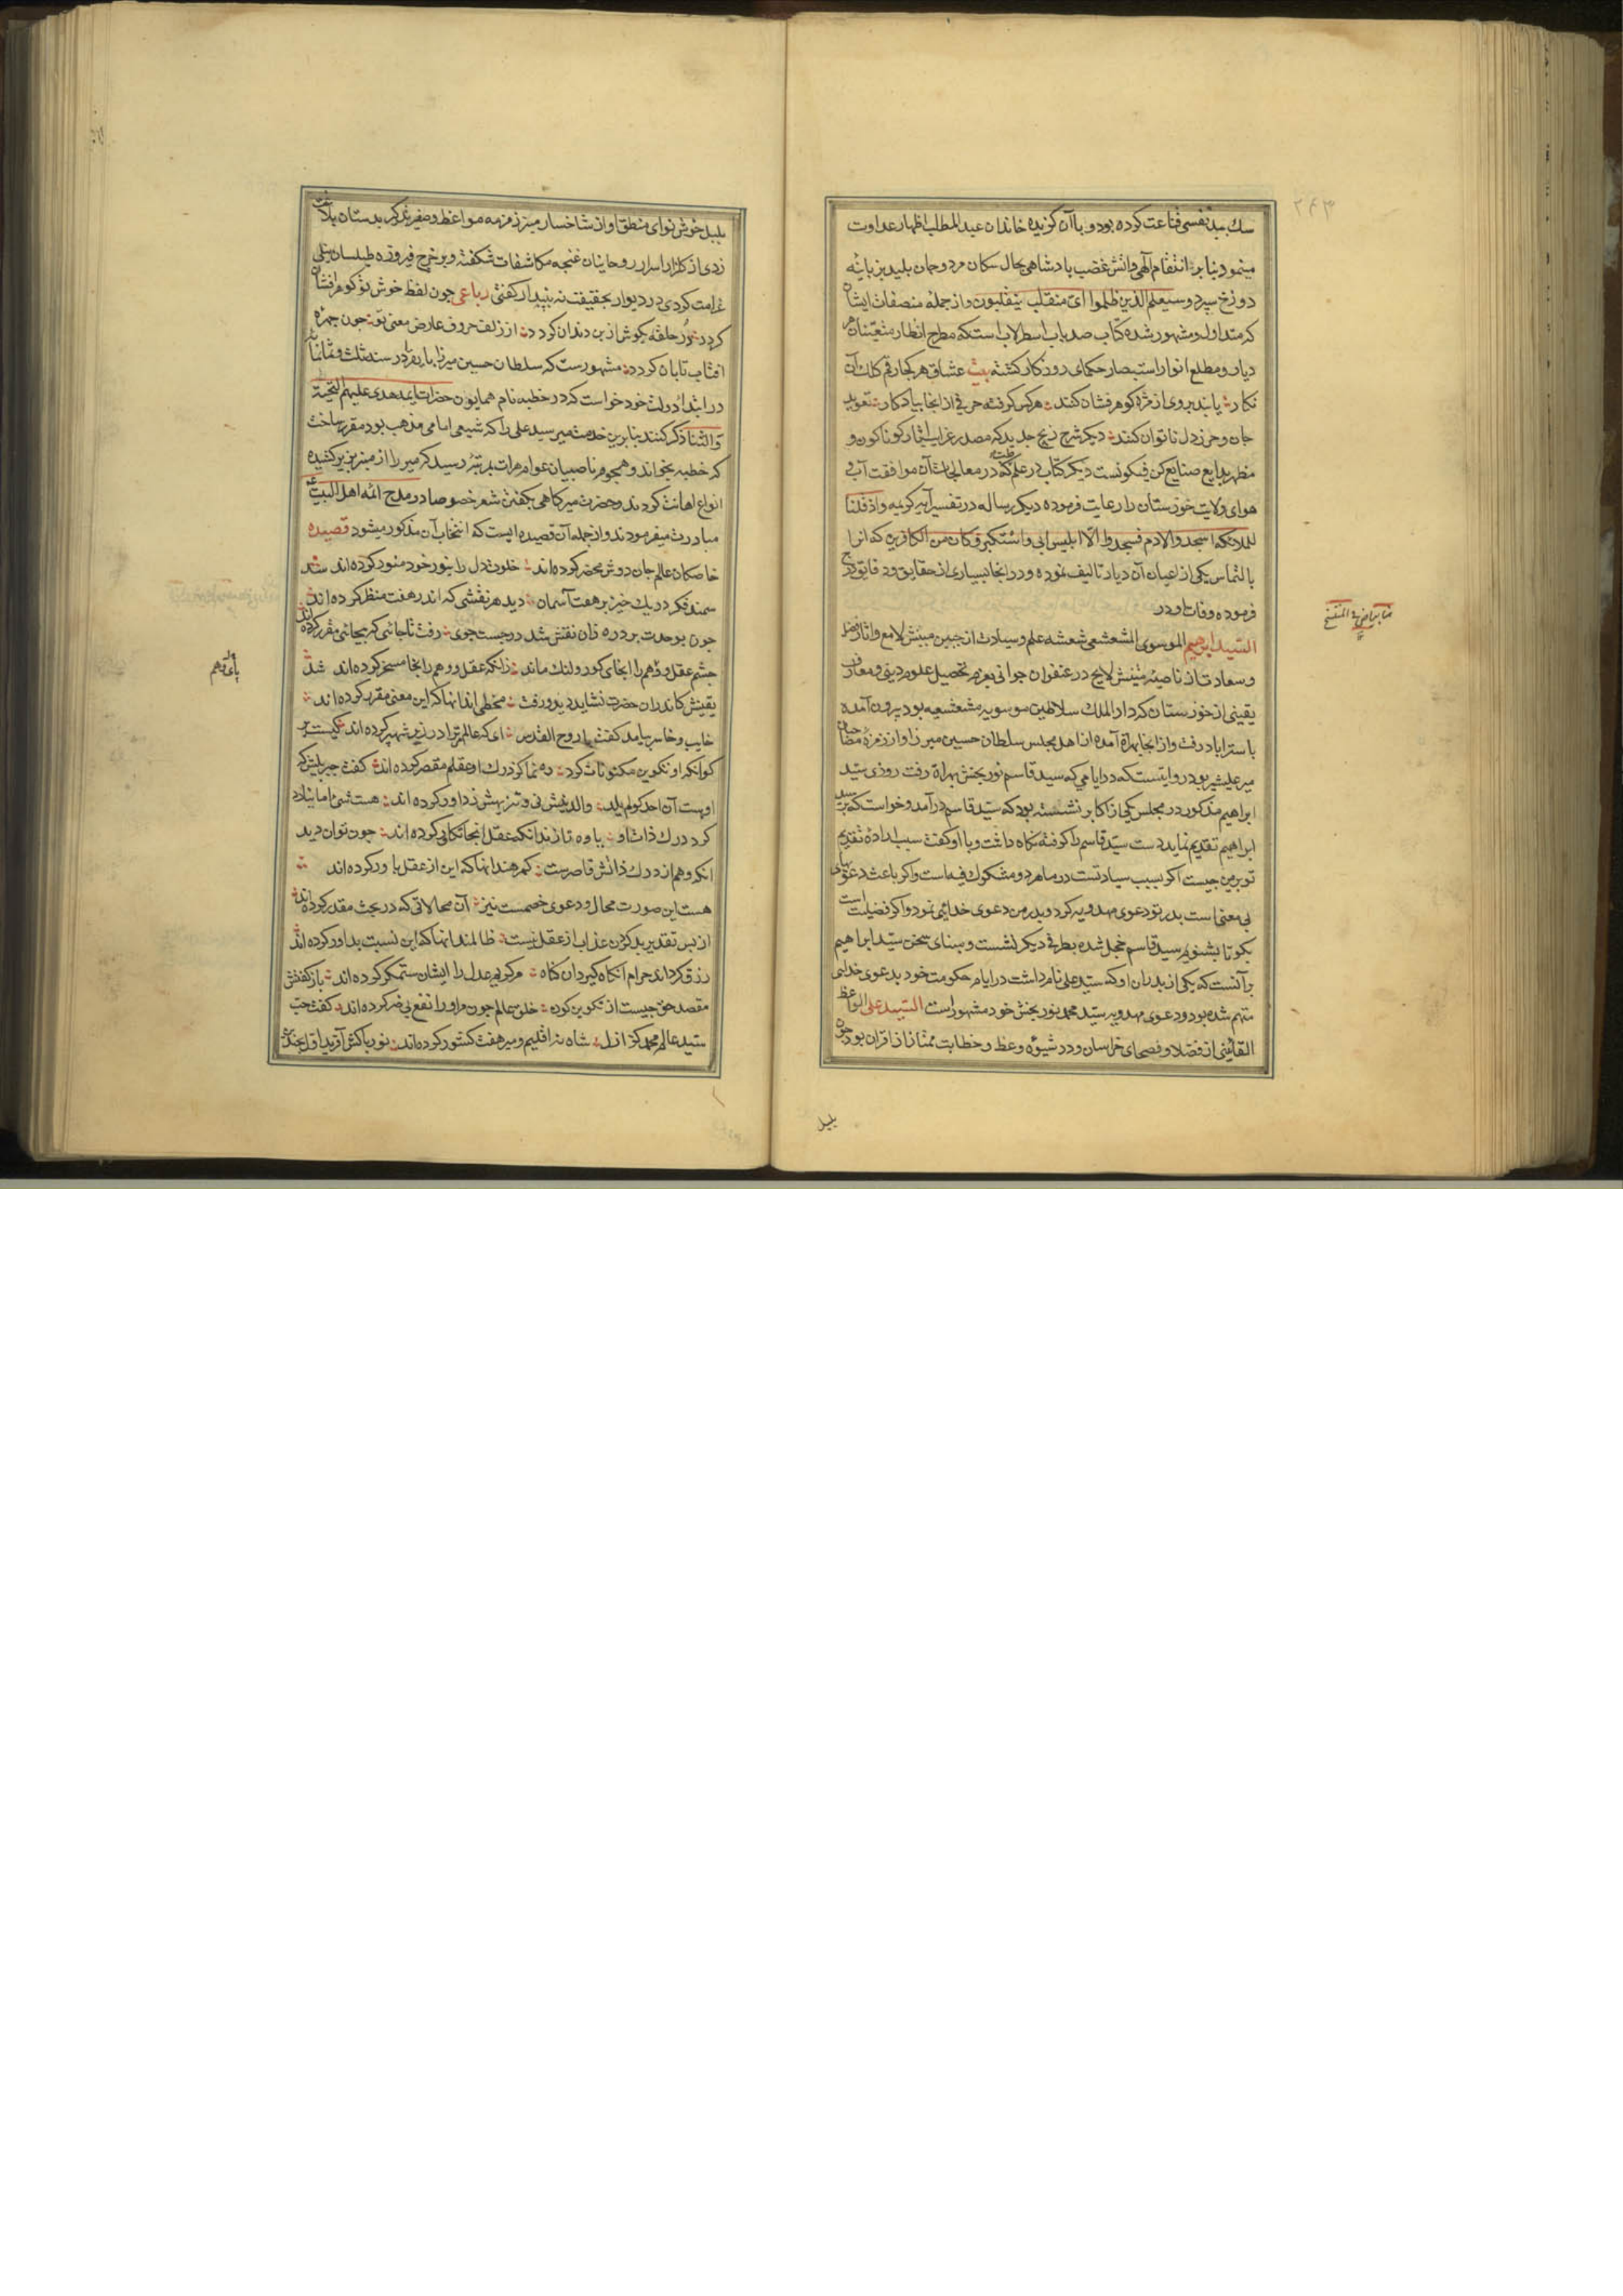 ۲۴۳
سك بید نفسی قناعت کرده بود و با آن کزیده خاندان عبد المطلب اظهار عداوت
مینمود بنابر انتقام آلهی و آتش غضب پادشاهی بحال سکان مرد و جهان پلید بزبانیه
دوزخ سپرد و سیعلم الذین ظلموا ای منقلب ینقلبون و از جمله مصنفات ایشان
که متداول و مشهور شده کتاب صد باب اسطرلابست که مطرح انظار منعینان هر
دیار و مطلع انوار استبصار حکمای روزکار کشته بیت عشاق هر کجا رقم کلك آن
نکار یابند بروی از مژه کوهر فشان کنند هر کس کرفته حرفی از انجا بیادکار تعوید
جان و حرز دل ناتوان کنند دیکر شرح زیج جدید که مصدر غرایب آثار کوناکون و
مظهر بدایع صنایع کن فیکونست دیکر کتابی در علم طب که در معالجات آن موافقت آب و
هوای ولایت خوزستان را رعایت فرموده دیکر رساله در تفسیر آیه کریمه واذ قلنا
للملائکة اسجدوا لادم فسجدوا الا ابلیس ابی واستکبر وکان من الکافرین که انرا
بالتماس یکی از اعیان آن دیار تالیف نموده و در انجا بسیاری از حقایق و دقایق درج
فرموده وفات او در
السید ابرهیم الموسوی المشعشعی شعشعه علم و سیادت از جبین مبینش لامع و اثار فضل
و سعادت از ناصیه متینش لایح در عنفوان جوانی بعزم تحصیل علوم دینی و معارف
یقینی از خوزستان که دار الملك سلاطین موسویه مشعشعیه بود بیرون آمده
باستراباد رفت و از انجا بهراة آمده از اهل مجلس سلطان حسین میرزا و از زمرهٔ مصاحبان
میر علیشیر بود روایتست که در ایامی که سید قاسم نور بخش بهراة رفت روزی سید
ابراهیم مذکور در مجلس یکی از اکابر نشسته بود که سید قاسم در آمد و خواست که بر سید
ابراهیم تقدیم نماید دست سید قاسم را کرفته نکاه داشت و با او کفت سبب ارادهٔ تقدیم
تو بر من چیست اکر بسبب سیادتست در ما هر دو مشکوك فیه است و اکر باعث دعویهای
بی معنی است پدر تو دعوی مهدویه کرد و پدر من دعوی خدائی نمود و اکر فضیلت است
بکو تا بشنویم سید قاسم خجل شده بطرفی دیکر نشست و مبنای سخن سید ابراهیم
بر آنست که یکی از پدران او که سید علی نام داشت در ایام حکومت خود بدعوی خدایی
متهم شده بود و دعوی مهدویه سید محمد نور بخش خود مشهور است السید علی الواعظ
القائنی از فضلا و فصحای خراسان و در شیوهٔ وعظ و خطابت ممتاز از اقران بود چون
بلبل
بلبل خوش نوای منطق او از شاخسار منبر زمزمه مواعظ و صفیر تذکر بدستان بلاغت
زدی از کلزار اسرار روحانیان غنچه مکاشفات شکفته و بر خرج فیروزه طیلسان نیلی
غرامت کردی در دیوار بحقیقت نه بپندار کفتی رباعی چون لفظ خوش تو کوهر افشان
کردد در حلقه بکوش از بن دندان کردد از زلف حروف عارض معنی تو چون چهره
افتاب تابان کردد مشهور ست که سلطان حسین میرزا بایقرا در سنه ثلث و ثمانمائه
در ابتداء دولت خود خواست که در خطبه نام همایون حضرات ایمه هدی علیهم التحیة
والثنا ذکر کنند بنابرین خدمت میر سید علی را که شیعی امامی مذهب بود مقرر ساخت
که خطبه بخواند و هجوم ناصبیان عوام هرات بمرتبهٔ رسید که میر را از منبر بزیر کشیده
انواع اهانت کردند و حضرت میر کاهی بکفتن شعر خصوصا در مدح ائمه اهل البیت
مبادرت میفرمودند و از جمله آن قصیده ایست که انتخاب آن مذکور میشود قصیده
خاصکان عالم جان دوش محضر کرده اند خلوت دل را بنور خود منور کرده اند شد
سمند فکر در یك خیز بر هفت آسمان دید هر نقشی که اندر هفت منظر کرده اند
چون بوحدت برد ره زان نقش شد در جست جوی رفت تا جائی که بیجائی مقرر کرده اند
چشم عقل و وهم را انجای کور و لنك ماند زانکه عقل و وهم را انجا مسخر کرده اند شد
یقینش کاندران حضرت نشاید دید و رفت مخطی اند انها که این معنی مقرر کرده اند
خایب و خاسر بیامد کفت با روح القدس ای که عالم را در زیر شهپر کرده اند کیست بر
کو آنکه او تکوین مکنونات کرد ره نما کز درك او عقلم مقصر کرده اند کفت جبریلش که
اوست آن احد کو لم یلد والد نیش نی و تنزیهش ز داور کرده اند هست شئ اما نیارد
کرد درك ذات او یاوه تازند انکه عقل انجا تکاپی کرده اند چون توان دید
انکه وهم از درك ذاتش قاصر ست کمرهند انها که این از عقل باور کرده اند
هست این صورت محال و دعوی خصمست نیز آن محالاتی که در بحث مقدر کرده اند
از پس تقدیر بد کردن عذاب از عقل نیست ظالمند انها که این نسبت بداور کرده اند
رزق کرداند حرام انکاه کیرد آن کناه هر کو بعدل را ایشان ستمکر کرده اند باز کفتش
مقصد حق چیست از تکوین کون خلق عالم چون مراورا نفع بی ضر کرده اند کفت حب
سید عالم محمد کز ازل شاه نه اقلیم و میر هفت کشور کرده اند نور پاکش آفرید اول
پای وهم